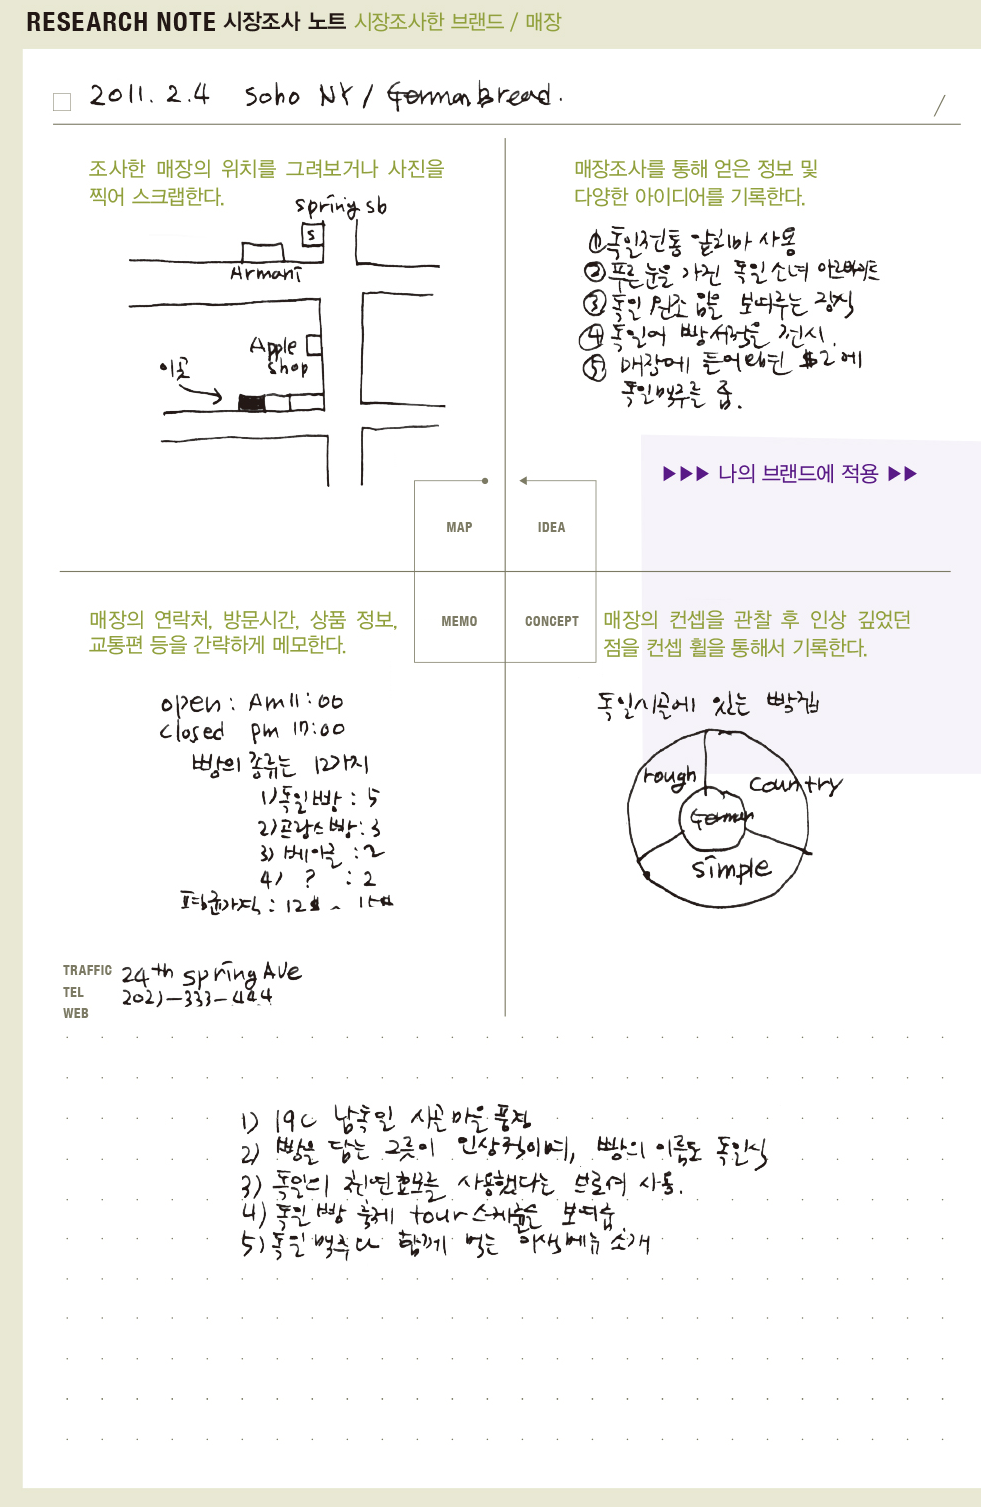 RESEARCH NOTE 시장조사 노트 시장조사한 브랜드 / 매장
2011. 2. 4 Soho NY / German Bread.
/
조사한 매장의 위치를 그려보거나 사진을
찍어 스크랩한다.
spring sb
S
Armani
Apple
shop
이곳
매장조사를 통해 얻은 정보 및
다양한 아이디어를 기록한다.
① 독일전통 앞치마 사용
② 푸른눈을 가진 독일소녀 아르바이트
③ 독일 원조임을 보여주는 장식
④ 독일어 빵서적을 전시.
⑤ 매장에 들어가면 $2에
독일맥주를 줌.
▶▶▶ 나의 브랜드에 적용 ▶▶
MAP
IDEA
MEMO
CONCEPT
매장의 연락처, 방문시간, 상품 정보,
교통편 등을 간략하게 메모한다.
open : Am 11:00
closed pm 17:00
빵의 종류는 12가지
1) 독일빵 : 5
2) 프랑스빵 : 3
3) 베이글 : 2
4) ? : 2
평균가격 : 12$ ~
매장의 컨셉을 관찰 후 인상 깊었던
점을 컨셉 휠을 통해서 기록한다.
독일시골에 있는 빵집
rough
country
German
simple
TRAFFIC 24th spring AVe
TEL 202)-333-444
WEB
1) 19C 남독일 시골마을 풍경
2) 빵을 담는 그릇이 인상적이며, 빵의 이름도 독일식
3) 독일의 천연효모를 사용했다는 브로셔 사용.
4) 독일 빵 축제 tour 스케줄을 보여줌.
5) 독일 맥주와 함께 먹는 야색메뉴 소개